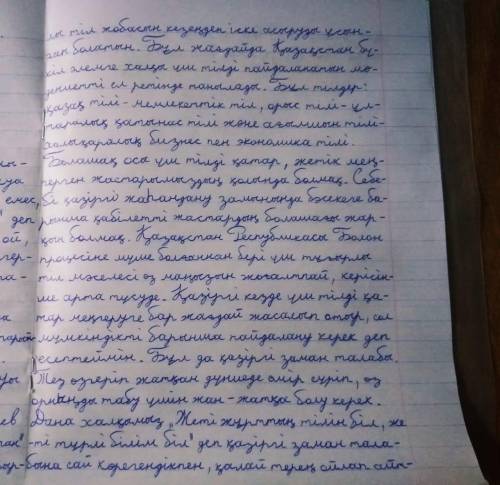 лы тіл жобасын кезеңдеп іске асыруды ұсын-
ған болатын. Бұл жағдайда Қазақстан бү-
кіл әлемге халқы үш тілді пайдаланатын мә-
дениетті ел ретінде танылады. Бұл тілдер:
қазақ тілі - мемлекеттік тіл, орыс тілі - ұл-
таралық қатынас тілі және ағылшын тілі -
халықаралық бизнес пен экономика тілі.
Болашақ осы үш тілді қатар, жетік мең-
герген жастарымыздың қолында болмақ. Себе-
бі, қазіргі жаһандану заманында бәсекеге ба-
рынша қабілетті жастардың болашағы жар-
қын болмақ. Қазақстан Республикасы Болон
процесіне мүше болғаннан бері үш тұғырлы
тіл мәселесі өз маңызын жоғалтпай, керісін-
ше арта түсуде. Қазіргі кезде үш тілді қа-
тар меңгеруге бар жағдай жасалып отыр, сол
мүмкіндікті барынша пайдалану керек деп
есептеймін. Бұл да қазіргі заман талабы.
Тез өзгеріп жатқан дүниеде өмір сүріп, өз
орныңды табу үшін жан-жақты болу керек.
Дана халқымыз "Жеті жұрттың тілін біл, же-
ті түрлі білім біл" деп қазіргі заман тала-
бына сай көрегендікпен, қалай терең ойлап айт-
ы-
емес,
деп
ой,
гер-
та-
ев